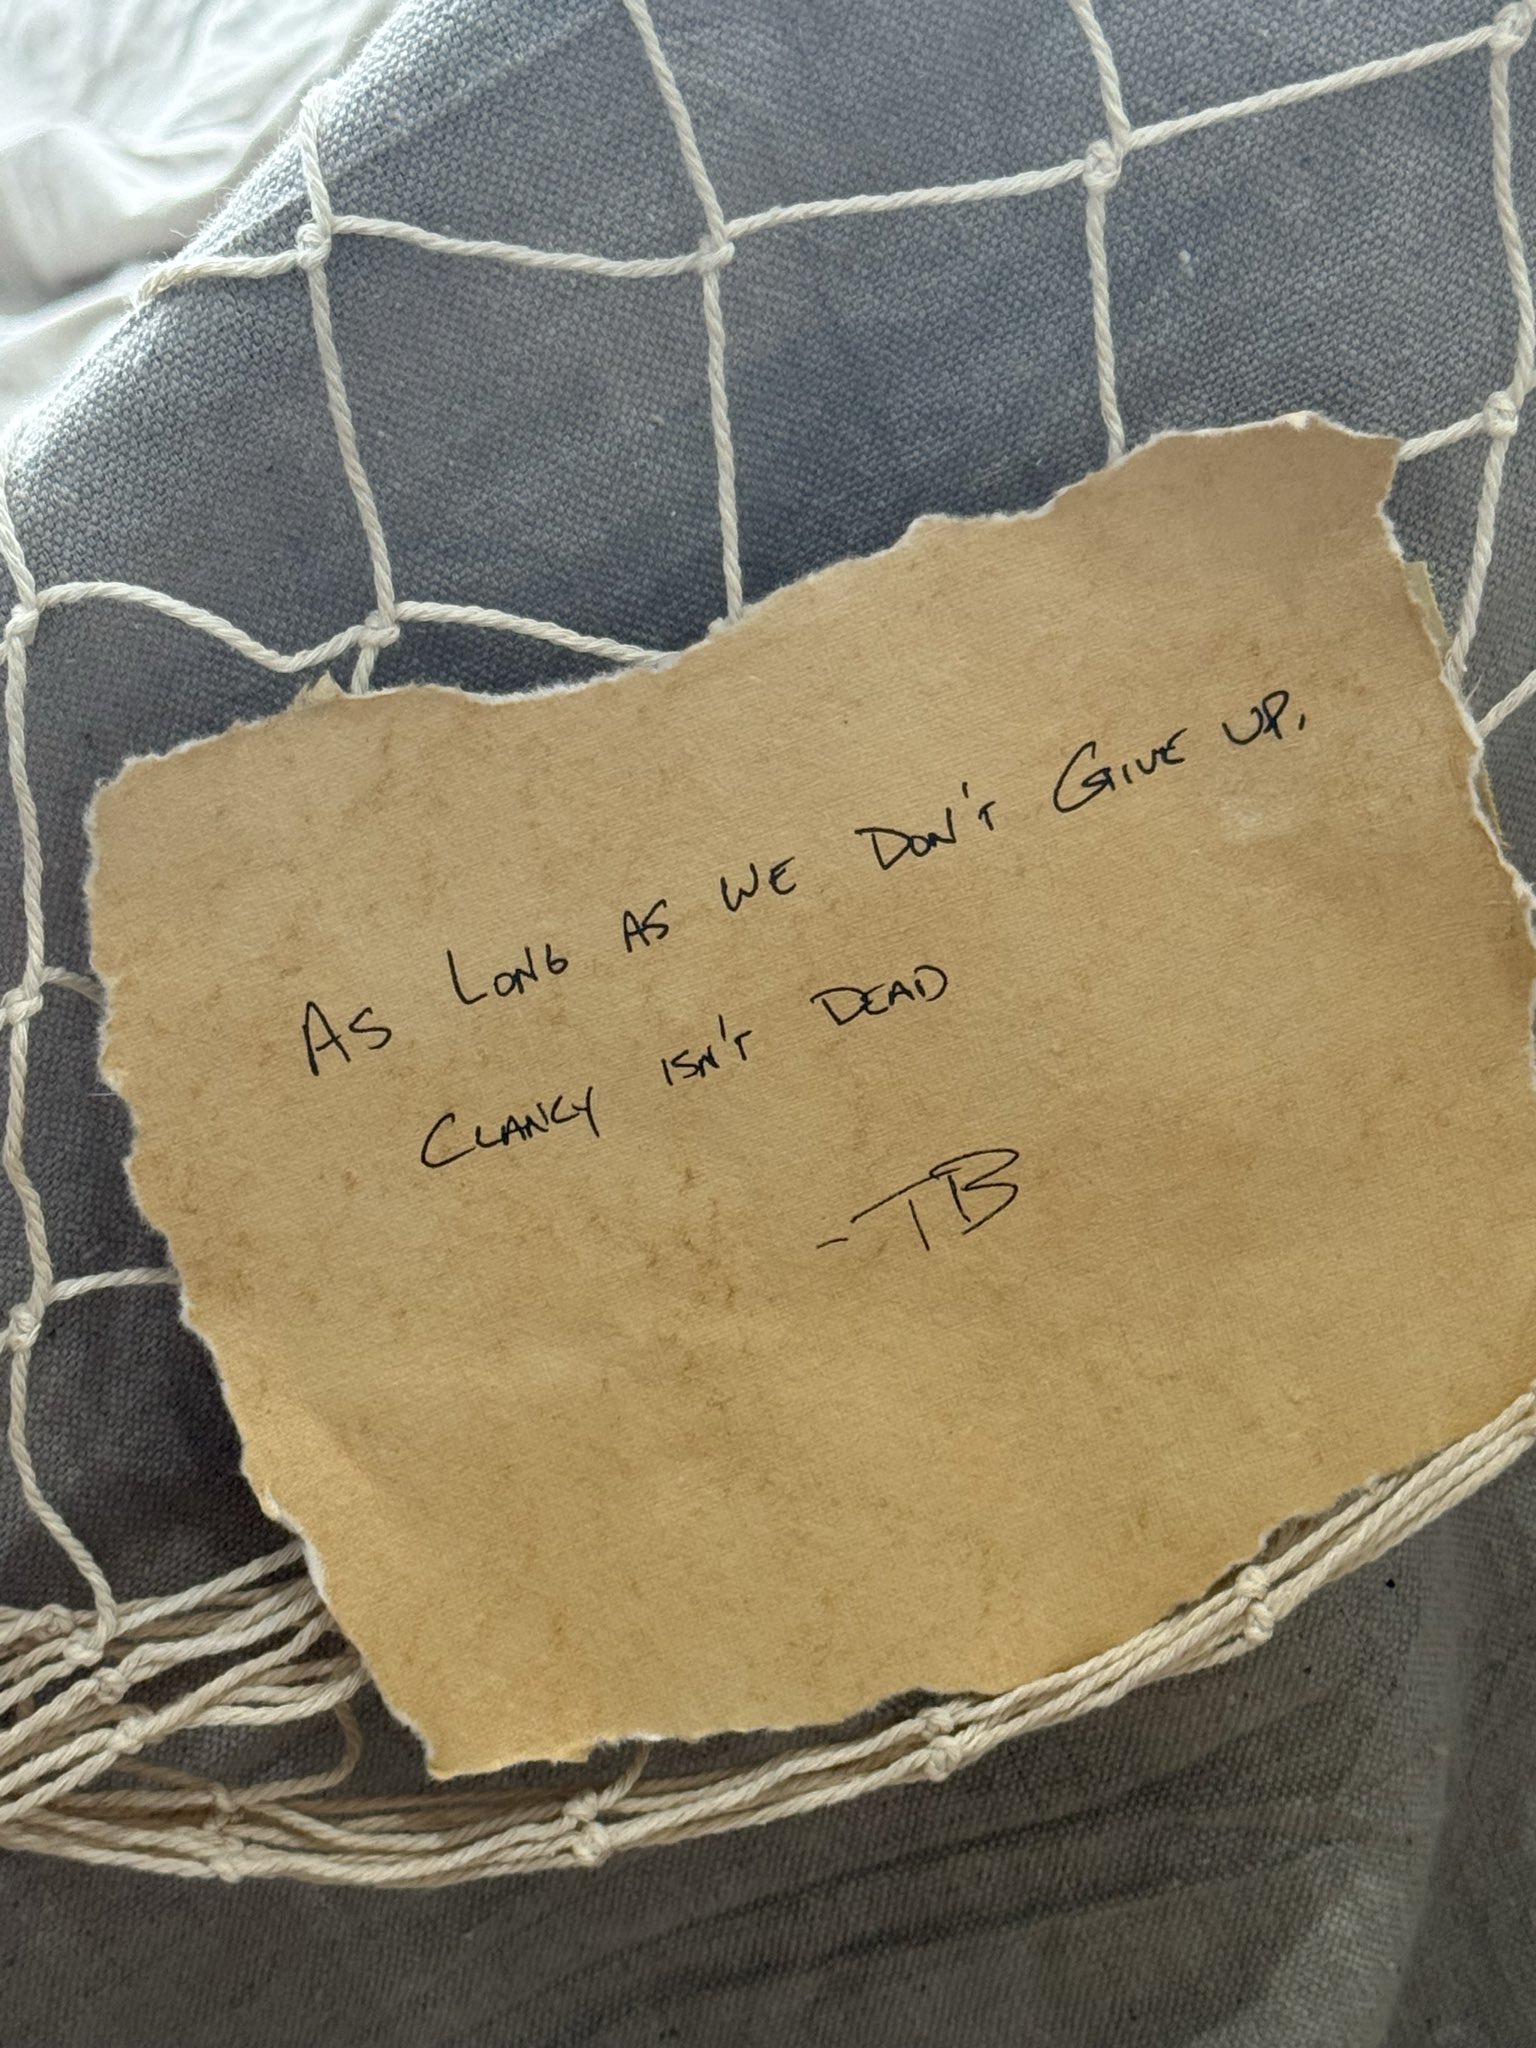 As LONG AS WE DON'T GIVE UP,
CLANCY ISN'T DEAD
-TB